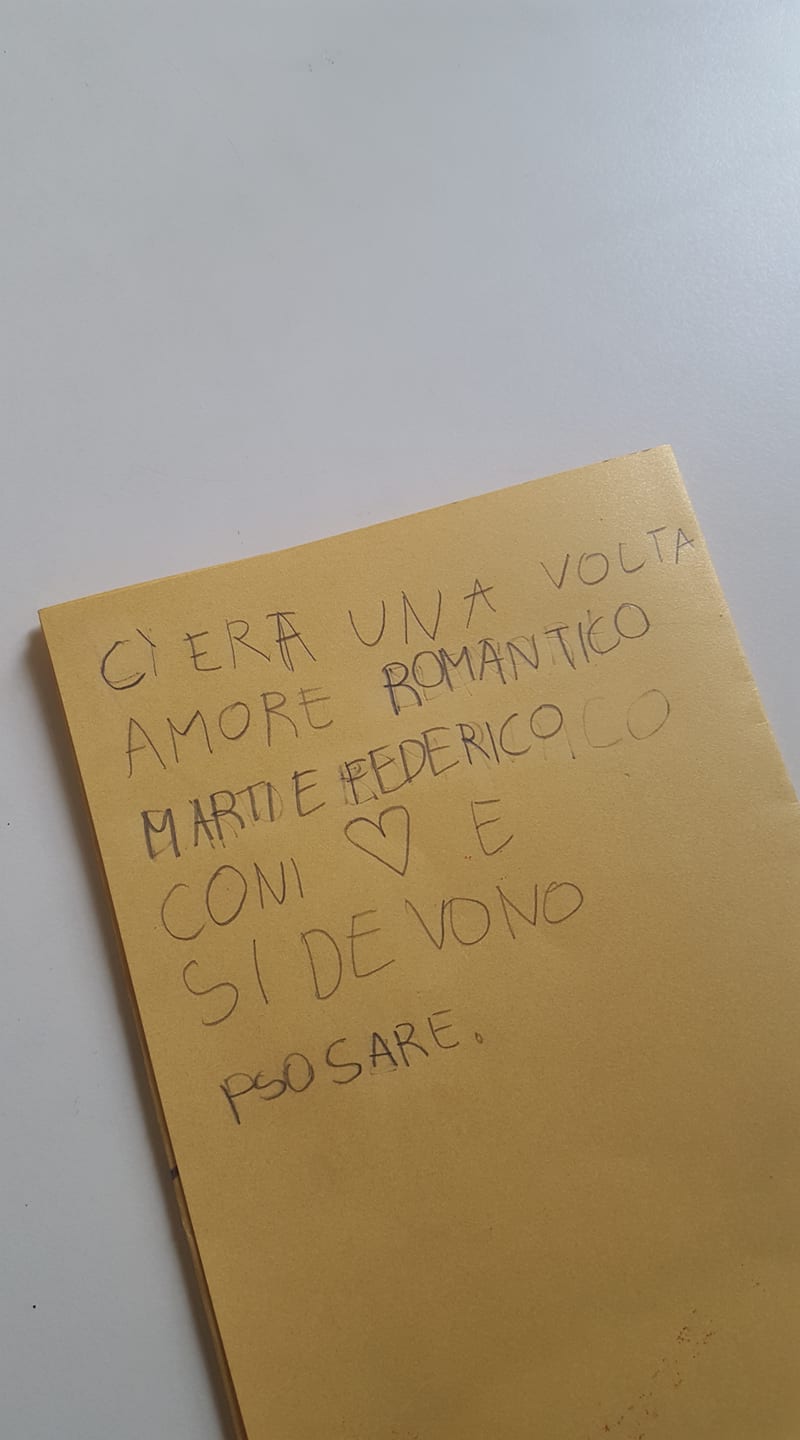 CÌ ERA UNA VOLTA
AMORE ROMANTICO
MARTI E FEDERICO
CONI ♡ E
SI DEVONO
PSOSARE.